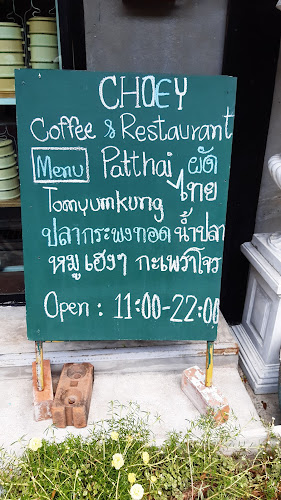 CHOEY
Coffee & Restaurant
Menu Patthai ผัดไทย
Tomyumkung
ปลากระพงทอดน้ำปลา
หมูเฮงๆ กะเพราโจร
Open : 11:00-22:00